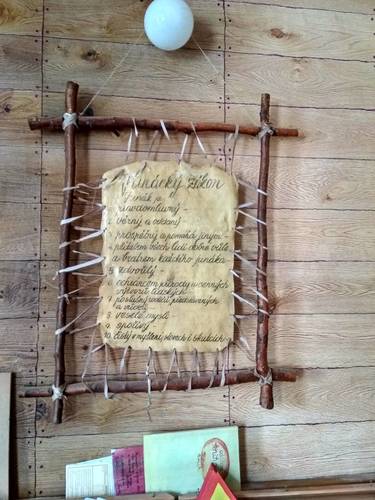 Junácký zákon
Junák je
1. pravdomluvný
2. věrný a oddaný
3. prospěšný a pomáhá jiným
4. přítelem všech lidí dobré vůle
a bratrem každého junáka
5. zdvořilý
6. ochráncem přírody a cenných
výtvorů lidských
7. poslušný rodičů, představených
a vůdců
8. veselé mysli
9. spořivý
10. čistý v myšlení, slovech i skutcích